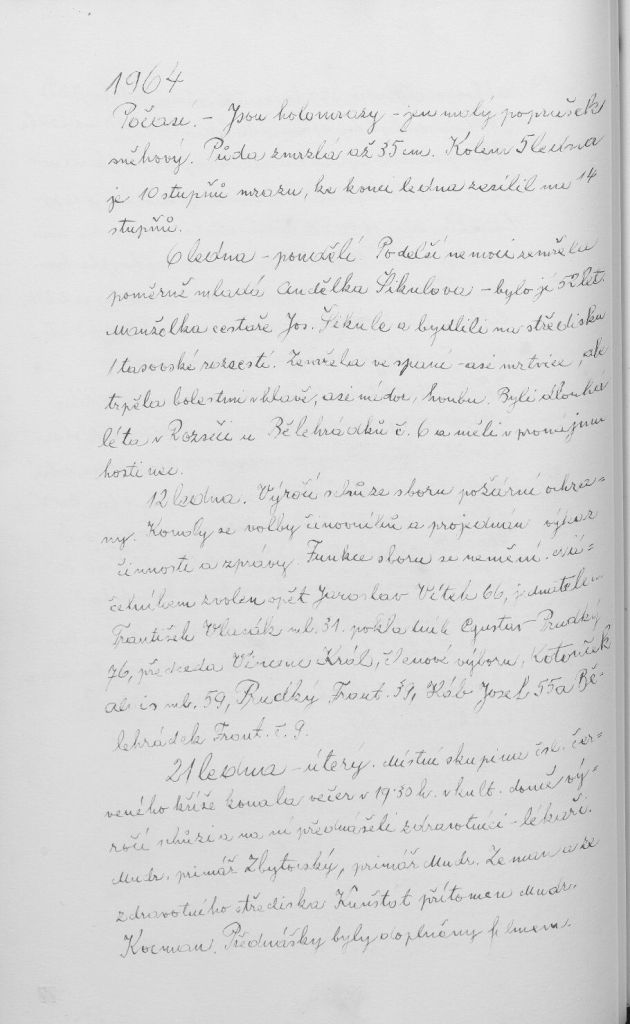 1964
Počasí. – Jsou holomrazy – jen malý poprašek
sněhový. Půda zmrzlá až 35 cm. Kolem 5 ledna
je 10 stupňů mrazu, ke konci ledna zesílil na 14
stupňů.
6 ledna – pondělí. Po delší nemoci zemřela
poměrně mladá Andělka Šikulova – bylo jí 52 let.
Manželka cestáře Jos. Šikule a bydlili na středisku
/ tasovské rozcestí. Zemřela ve spaní – asi mrtvice, ale
trpěla bolestmi v hlavě, asi nádor, houbu. Byli dlouhá
léta v Rozseči u Bělehrádků č. 6 a měli v pronájmu
hostinec.
12 ledna. Výročí schůze sboru požární ochra-
ny. Konaly se volby činovníků a projednán výkaz
činnosti a zprávy. Funkce sboru se nemění.
čelníkem zvolen opět Jaroslav Vítek 66, jednatelem
František Vlasák ml. 31. pokladník Gustav Prudký
76, předseda Vincenc Král, členové výboru, Kotouček
Alois ml. 59, Prudký Frant. 39, Kob Josef 55 a Bě-
lehrádek Frant. č. 9.
21 ledna – úterý. Místní skupina čsl. čer-
veného kříže konala večer v 19.30 h. v kult. domě vý-
ročí schůzi a na ní přednášeli zdravotníci – lékaři.
Mudr. primář Zbytovský, primář Mudr. Zeman a ze
zdravotného střediska Kunštát přítomen Mudr.
Kocman. Přednášky byly doplněny filmem.